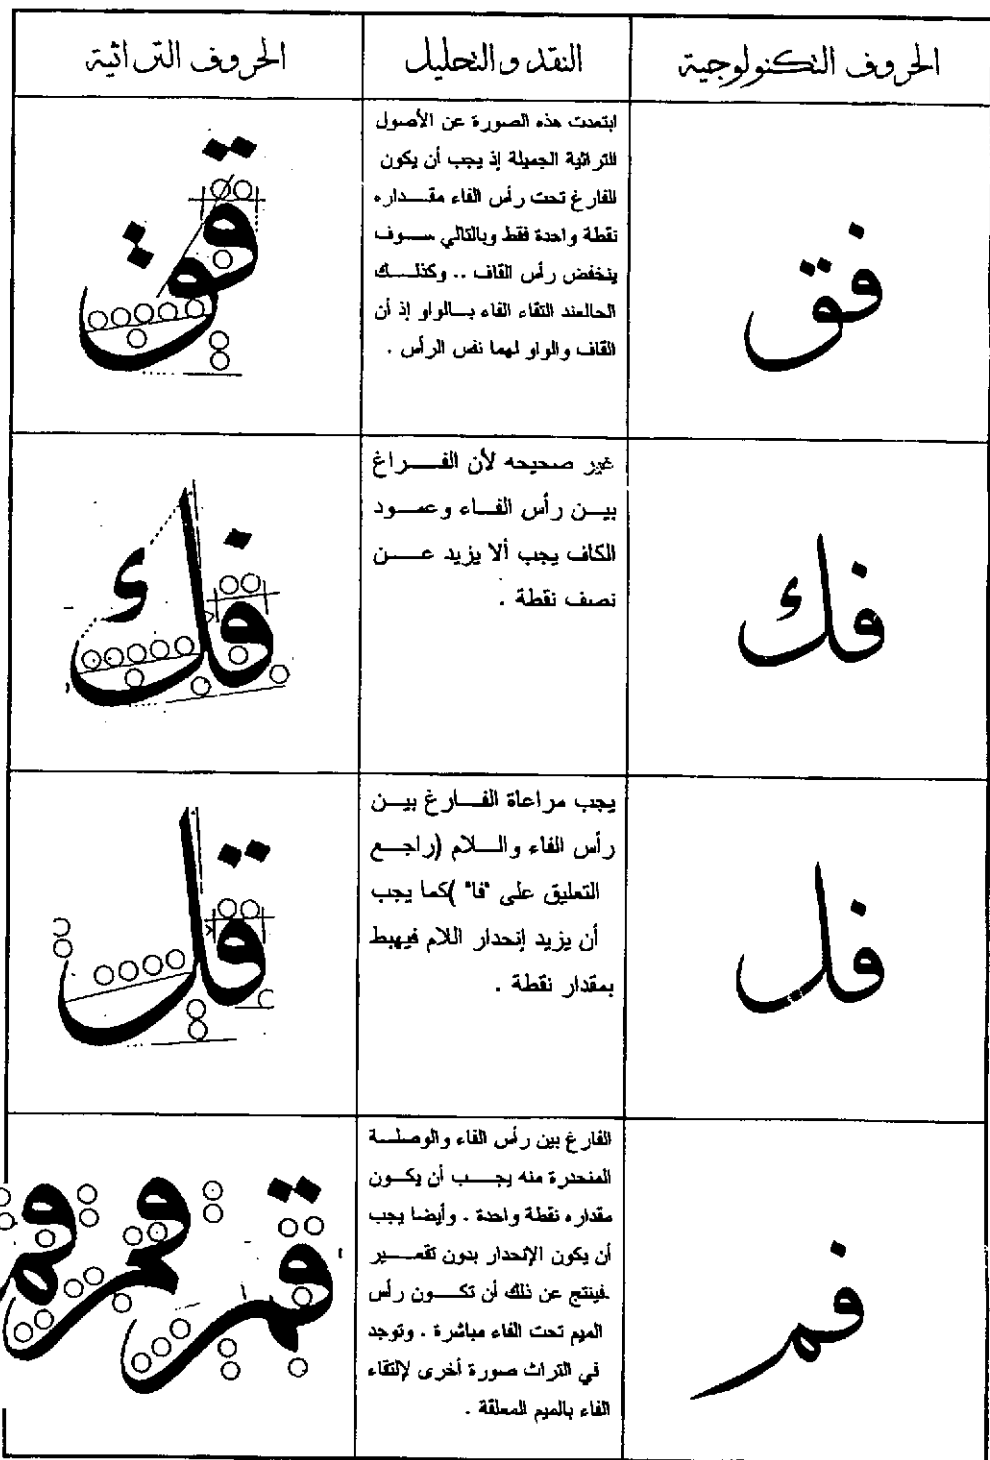 الحروف التكنولوجية
النقد والتحليل
الحروف التراثية
فق
ابتعدت هذه الصورة عن الأصول
التراثية الجميلة إذ يجب أن يكون
الفارغ تحت رأس الفاء مقــداره
نقطة واحدة فقط وبالتالي ســوف
ينخفض رأس القاف .. وكذلــك
الحالعند التقاء الفاء بــالواو إذ أن
القاف والواو لهما نفس الرأس .
قق
فك
غير صحيحه لأن الفــراغ
بيــن رأس الفــاء وعمــود
الكاف يجب ألا يزيد عــن
نصف نقطة .
فك
فل
يجب مراعاة الفــارغ بيــن
رأس الفاء والــلام (راجــع
التعليق على "فا" )كما يجب
أن يزيد إنحدار اللام فيهبط
بمقدار نقطة .
قل
فم
الفارغ بين رأس الفاء والوصلــة
المنحدرة منه يجــب أن يكــون
مقداره نقطة واحدة . وأيضا يجب
أن يكون الإنحدار بدون تقعــير
فينتج عن ذلك أن تكــون رأس
الميم تحت الفاء مباشرة . وتوجد
في التراث صورة أخرى لإلتقاء
الفاء بالميم المعلقة .
قم